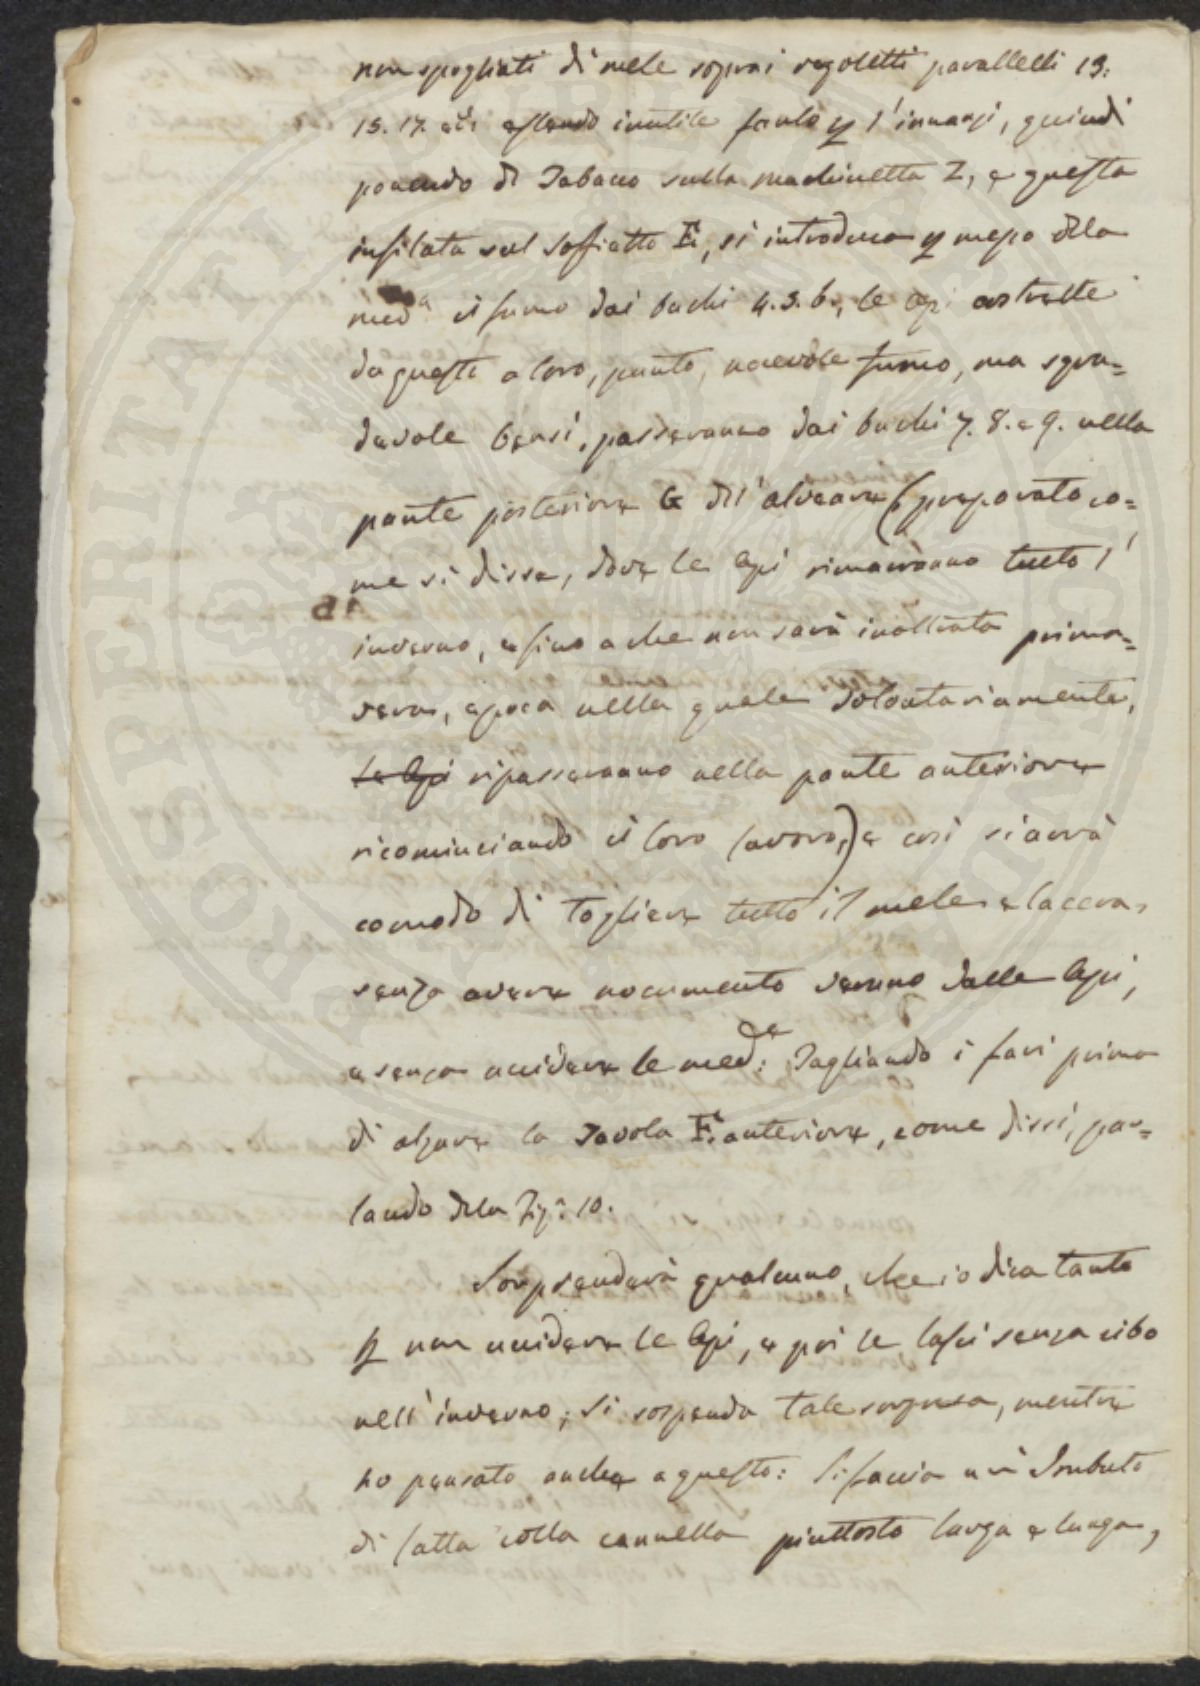 non spogliati di mele sopra i regoletti paralleli 13.
15. 17. etc. essendo inutile farlo p l'innanzi, quindi
ponendo di Tabacco sulla machinetta Z, e questa
infilata sul soffietto E, si introduca p mezzo dela
med.a il fumo dai buchi 4. 5. 6., le Api costrette
da questo a loro, punto, nocevole fumo, ma sgra=
devole bensì, passeranno dai buchi 7. 8. e 9. nella
parte posteriore G dell'alveare (preparato co=
me si disse, dove le Api rimarranno tutto l'
inverno, e fino a che non sarà inoltrata prima=
vera, epoca nella quale volontariamente,
le Api ripasseranno nella parte anteriore
ricominciando il loro lavoro,) e così si avrà
comodo di togliere tutto il mele e la cera,
senza avere nocumento veruno dalle Api,
e senza uccidere le med.e: Tagliando i favi prima
di alzare la Tavola F. anteriore, come dissi, par=
lando dela Fig.a 10.
Sorprenderà qualcuno, che io dica tanto
p non uccidere le Api, e poi le lasci senza cibo
nell'inverno; Si sospenda tale sorpresa, mentre
ho pensato anche a questo: Si faccia un Imbuto
di latta colla cannella piuttosto larga e lunga,
PROSPERITATI PUBLICAE AUGENDAE